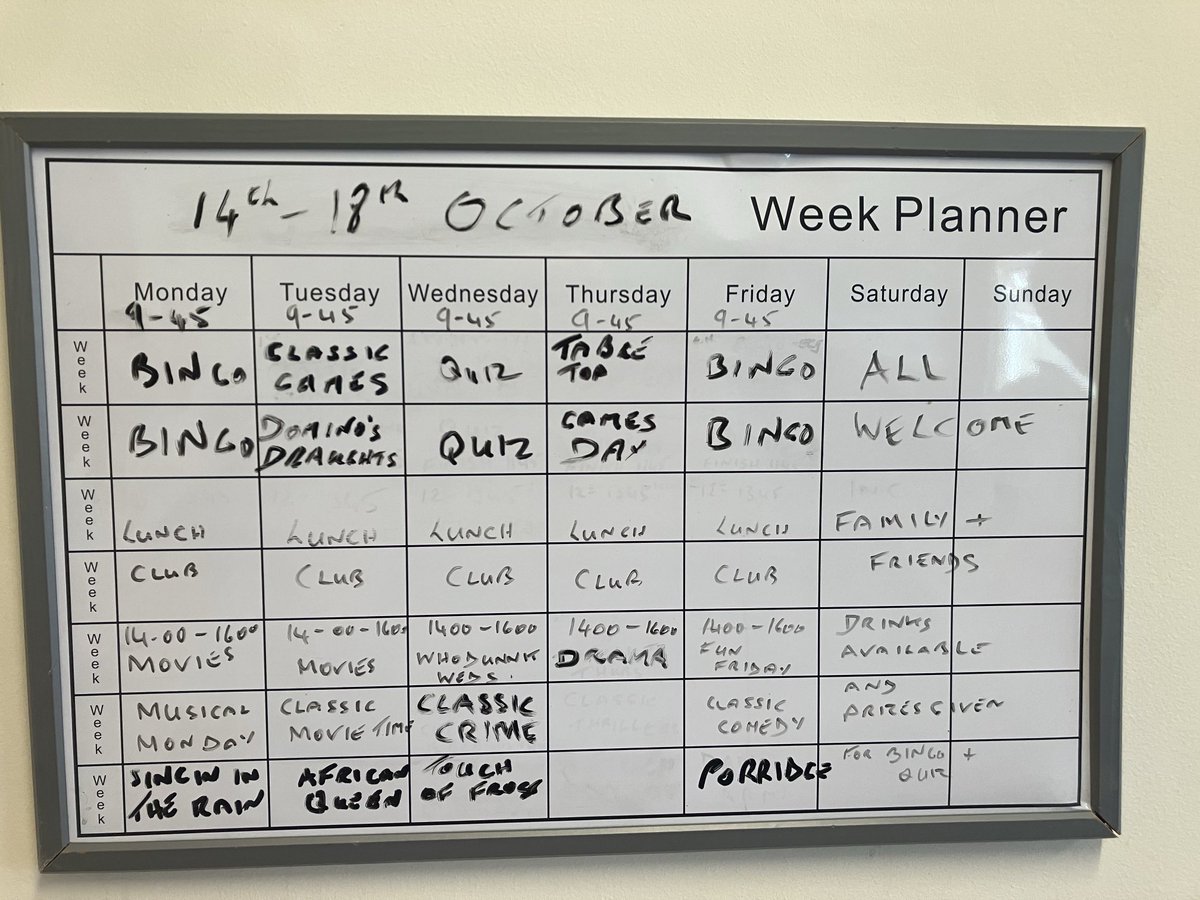 14th - 18th OCTOBER Week Planner
Monday Tuesday Wednesday Thursday Friday Saturday Sunday
9-45 9-45 9-45 9-45 9-45
Week BINGO CLASSIC GAMES QUIZ TABLE TOP BINGO ALL
Week BINGO DOMINO'S DRAUGHTS QUIZ GAMES DAY BINGO WELCOME
Week LUNCH LUNCH LUNCH LUNCH LUNCH FAMILY +
Week CLUB CLUB CLUB CLUB CLUB FRIENDS
Week 14-00-1600 MOVIES 14-00-1600 MOVIES 1400-1600 WHODUNNIT WEDS. 1400-1600 DRAMA 1400-1600 FUN FRIDAY DRINKS AVAILABLE
Week MUSICAL MONDAY CLASSIC MOVIE TIME CLASSIC CRIME CLASSIC COMEDY AND PRIZES GIVEN
Week SINGIN IN THE RAIN AFRICAN QUEEN TOUCH OF FROST PORRIDGE FOR BINGO + QUIZ